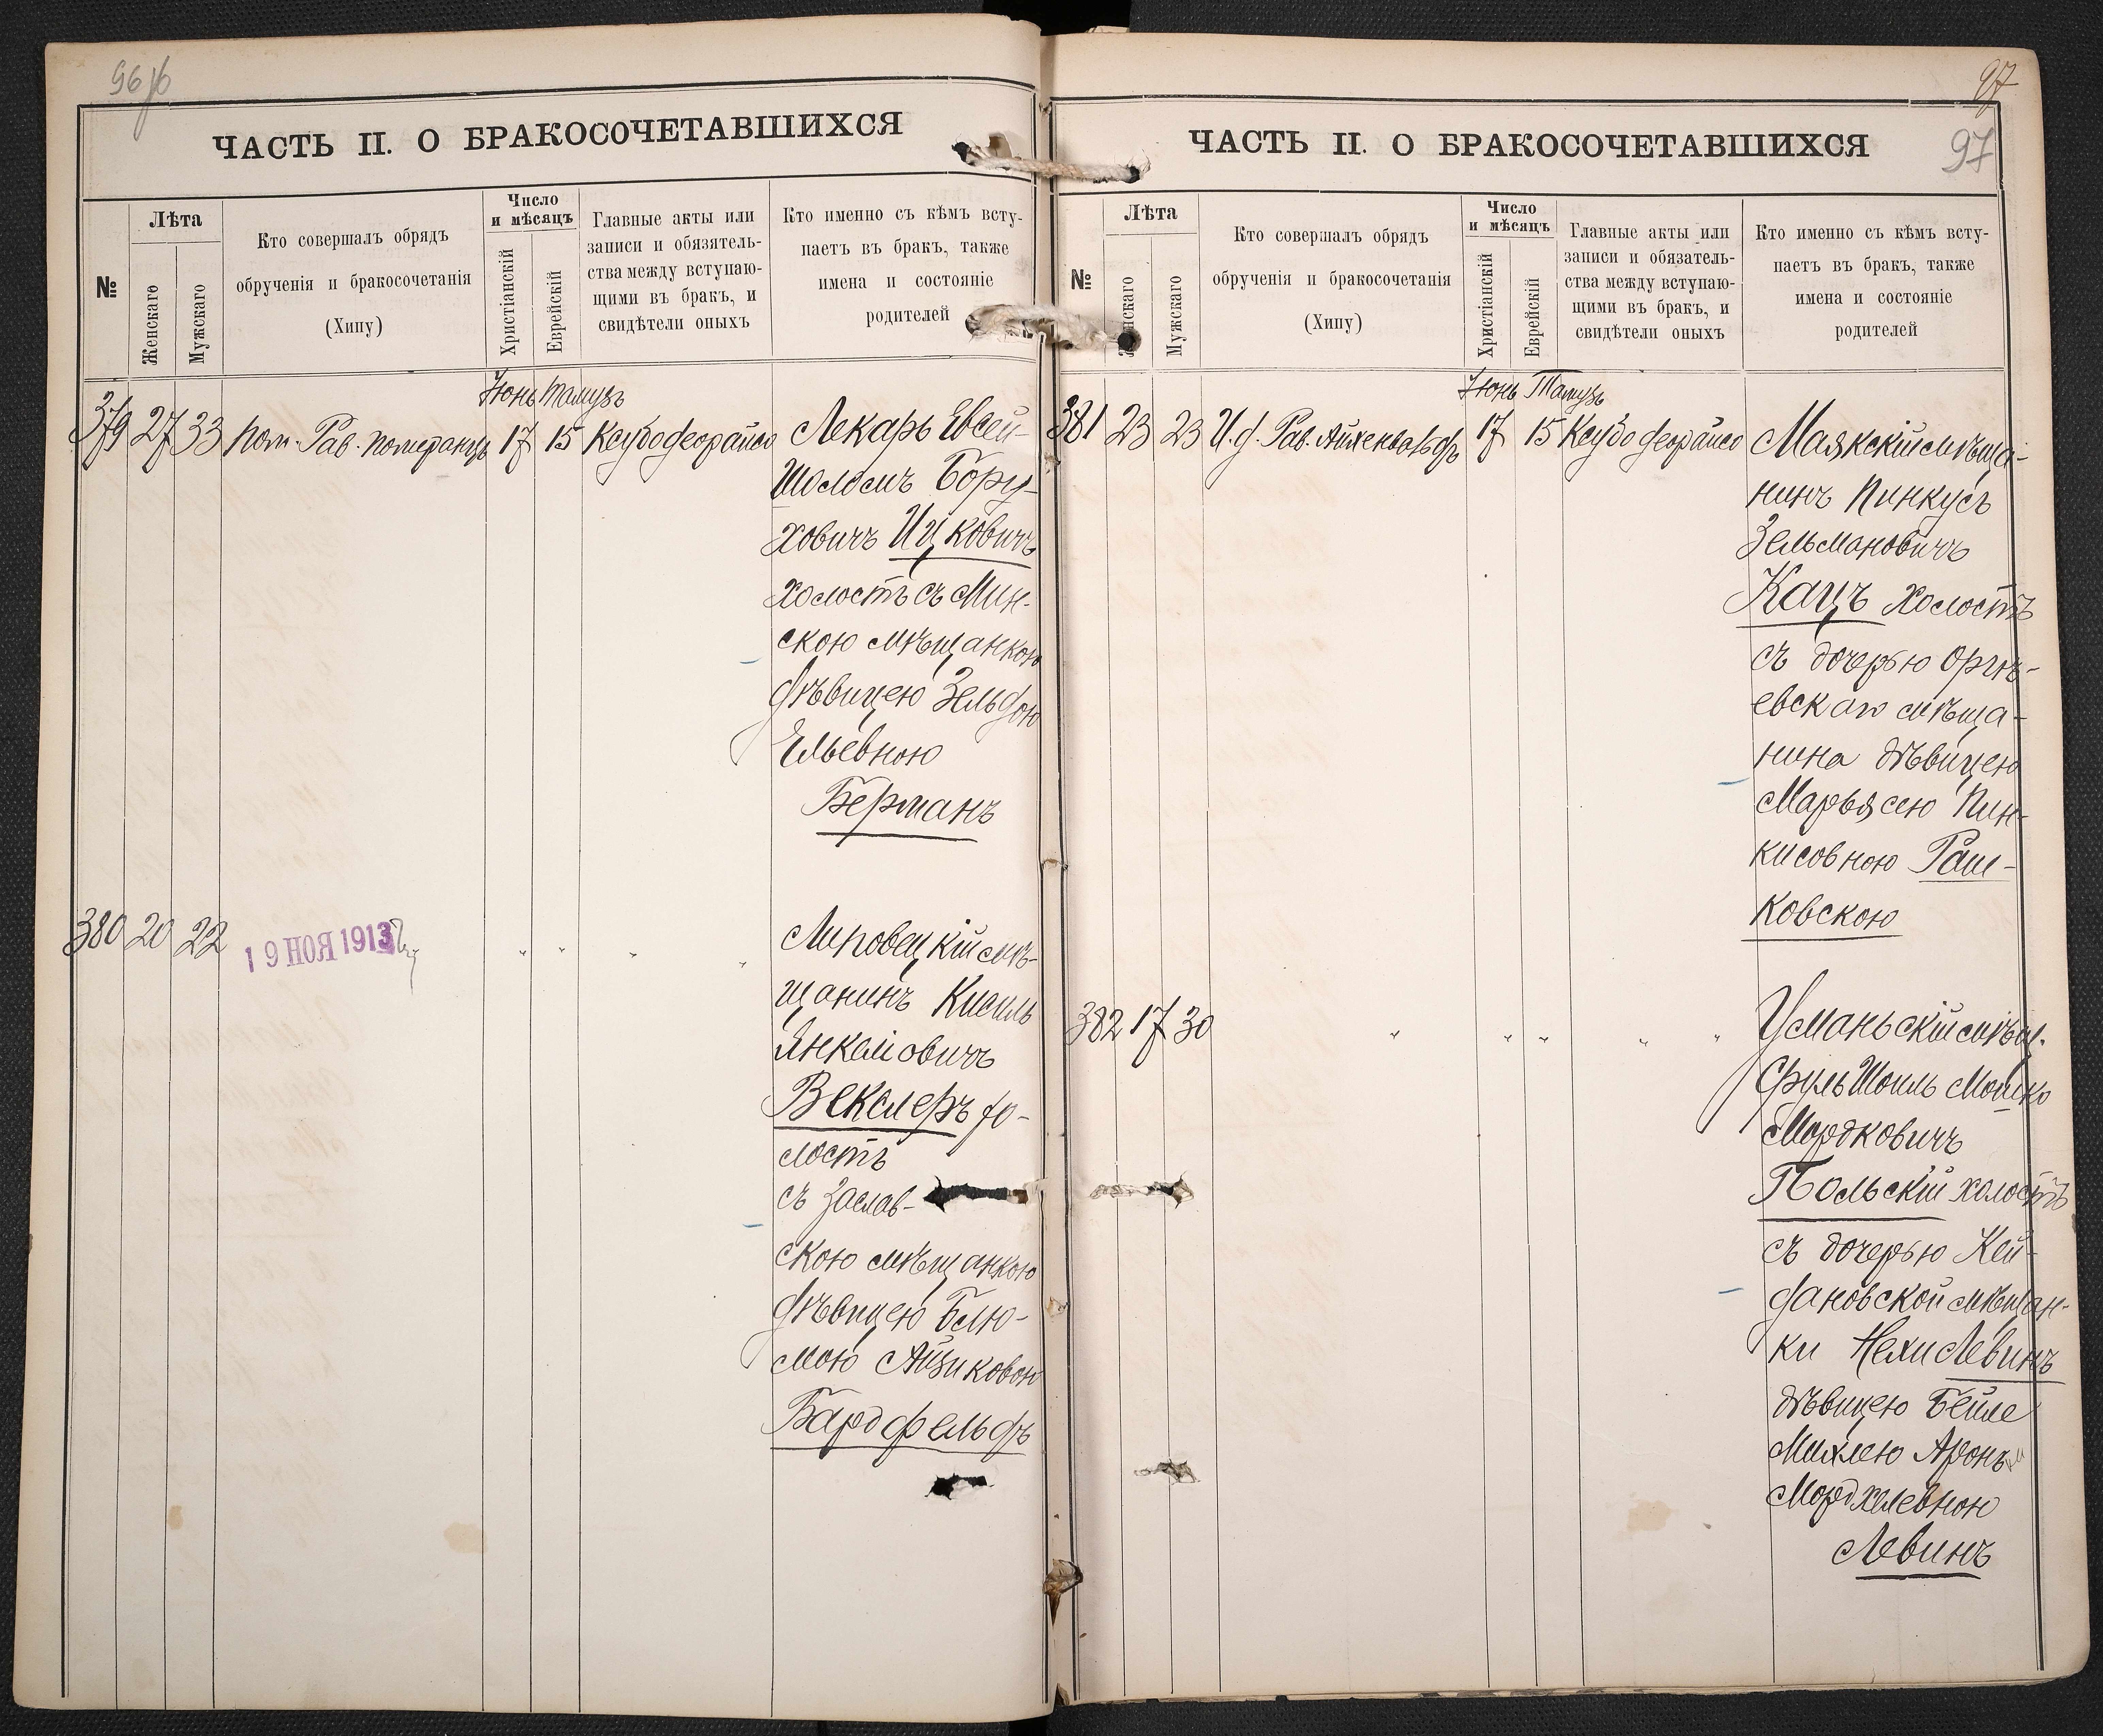 96 об
ЧАСТЬ II. О БРАКОСОЧЕТАВШИХСЯ
№
Лѣта
Женскаго
Мужскаго
Кто совершалъ обрядъ
обрученія и бракосочетанія
(Хипу)
Число
и мѣсяцъ
Христіанскій
Еврейскій
Главные акты или
записи и обязятель-
ства между вступаю-
щими въ бракъ, и
свидѣтели оныхъ
Кто именно съ кѣмъ всту-
паетъ въ бракъ, также
имена и состояніе
родителей
Іюнь Тамузъ
379 27 33 Пом. Рав. Померанцъ 17 15 Ксубо деорайсо Лекарь Евсей-
Шоломъ Бору-
ховичъ Ицковичъ
холостъ съ Мин-
скою мѣщанкою
дѣвицею Зельдою
Ельевною
Берманъ
380 20 22 " " " " Липовецкій мѣ-
19 НОЯ 1913
щанинъ Кисиль
Янкелiовичъ
Векслеръ хо-
лостъ
съ Заслав-
скою мѣщанкою
дѣвицею Блю-
мою Айзиковою
Бардфельдъ
97
97
ЧАСТЬ II. О БРАКОСОЧЕТАВШИХСЯ
№
Лѣта
Женскаго
Мужскаго
Кто совершалъ обрядъ
обрученія и бракосочетанія
(Хипу)
Число
и мѣсяцъ
Христіанскій
Еврейскій
Главные акты или
записи и обязатель-
ства между вступаю-
щими въ бракъ, и
свидѣтели оныхъ
Кто именно съ кѣмъ всту-
паетъ въ бракъ, также
имена и состояніе
родителей
Іюнь Тамузъ
381 23 23 И. д. Рав. Айхенвальдъ 17 15 Ксубо деорайсо Маякскій мѣща-
нинъ Пинкусъ
Зельмановичъ
Кацъ холостъ
съ дочерью Оргѣ-
евскаго мѣща-
нина дѣвицею
Марьясею Пин-
кисовною Раш-
ковскою
382 17 30 " " " " " Уманьскій мѣщ.
Сруль Шоиль Мошко
Мордковичъ
Польскій холостъ
съ дочерью Кей-
дановской мѣщан-
ки Нехи Левинъ
дѣвицею Бейле
Михлею Аронъ
Мордхелевною
Левинъ